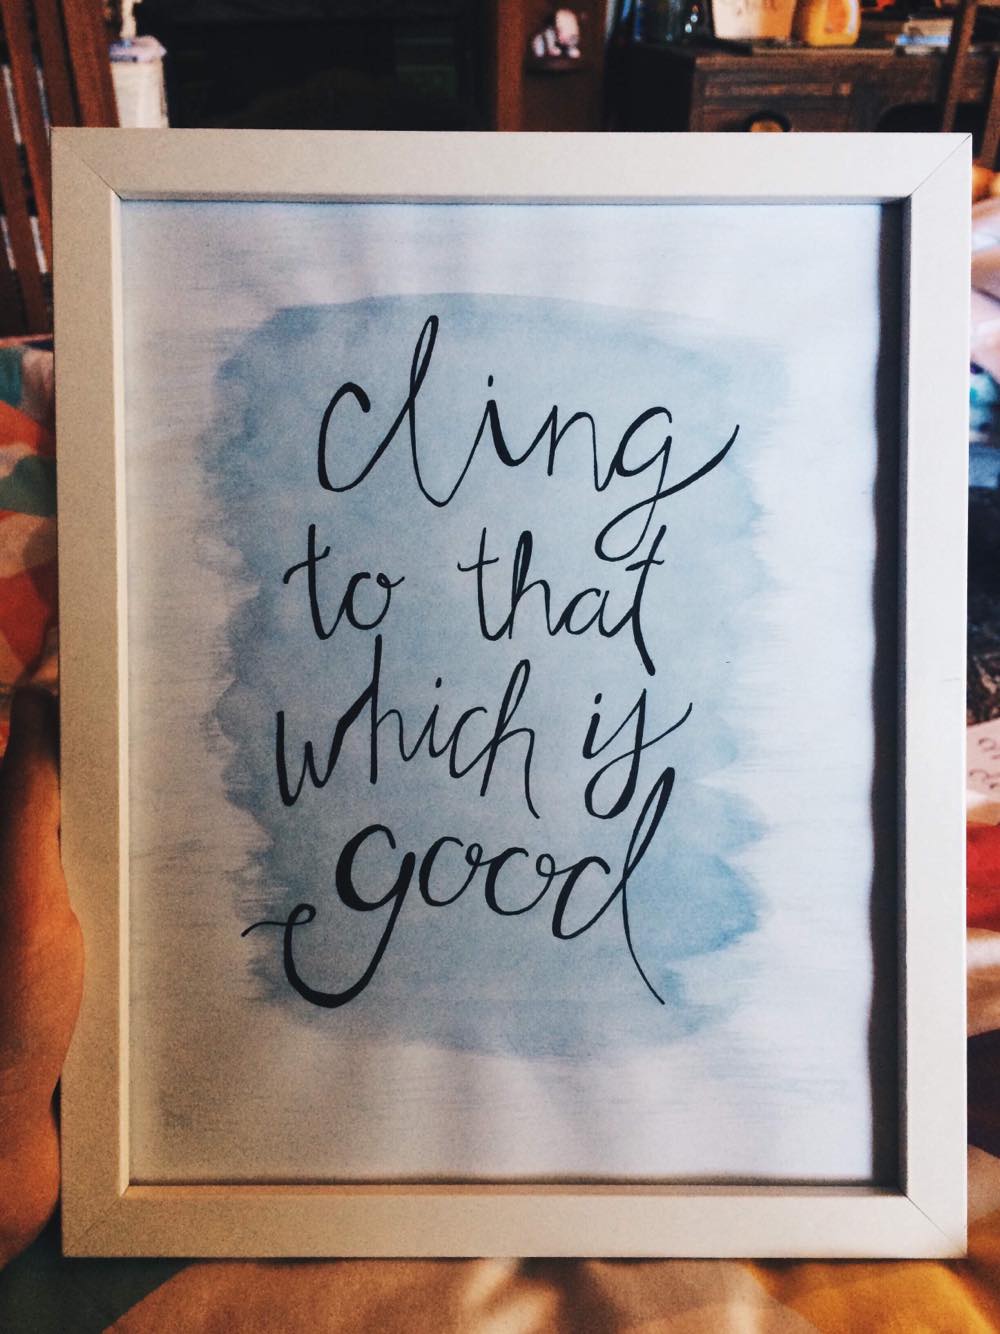 cling
to that
which is
good